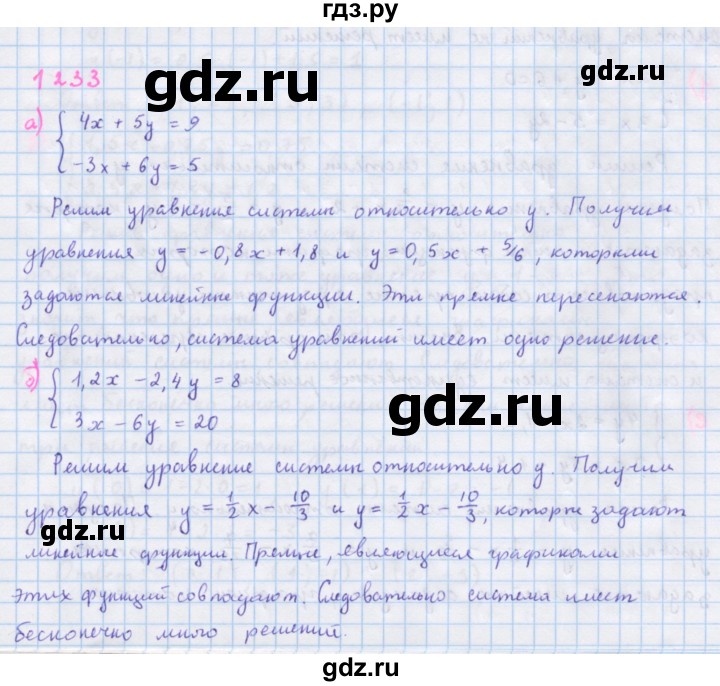 гдз.ру
1233
gdz.ru
а) { 4x + 5y = 9
-3x + 6y = 5
Решим уравнения системы относительно y. Получим
уравнения y = -0,8x + 1,8 и y = 0,5x + 5/6, которыми
задаются линейные функции. Эти прямые пересекаются.
Следовательно, система уравнений имеет одно решение.
б) { 1,2x - 2,4y = 8
3x - 6y = 20
gdz.ru
Решим уравнение системы относительно y. Получим
уравнения y = 1/2 x - 10/3 и y = 1/2 x - 10/3, которые задают
gdz.ru
линейные функции. Прямые, являющиеся графиками
этих функций совпадают. Следовательно система имеет
бесконечно много решений.
gdz.ru